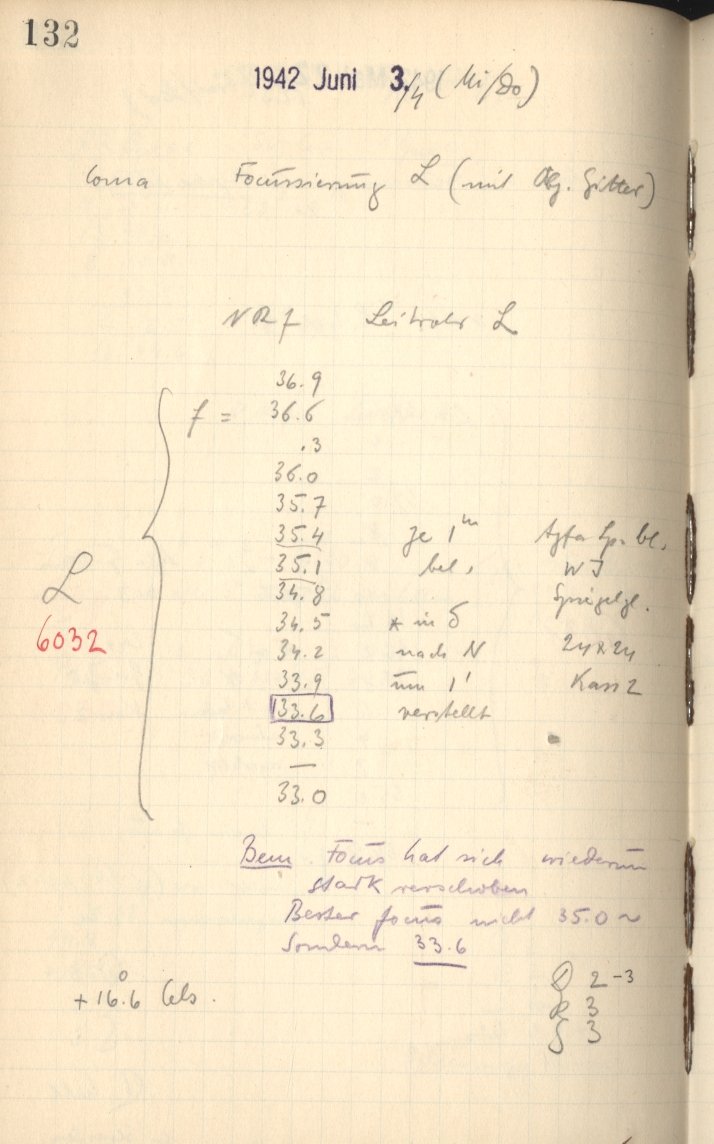 132
1942 Juni 3./4 (Mi/Do)
Coma Focussierung L (mit Obj. Gitter)
f Leitrohr L
36.9
f = 36.6
.3
36.0
35.7
35.4 je 1m Agfa Sp. bl.
35.1 bel.
34.8 Spiegelgl.
34.5 * in δ
34.2 nach N 24x24
33.9 um 1' Kass 2
33.6 verstellt
33.3
—
33.0
L
6032
Bem. Focus hat sich wiederum
stark verschoben
Bester focus nicht 35.0 ~
sondern 33.6
+16.6° Cels.
2-3
3
3